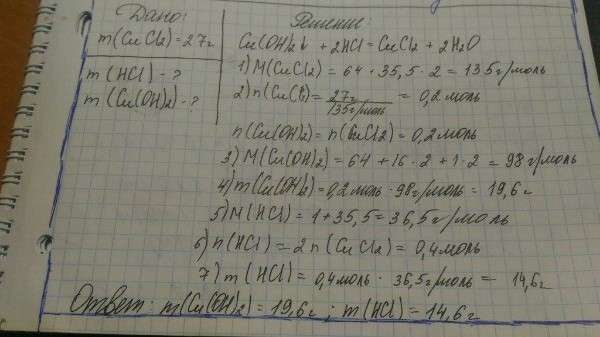 Дано:
m(CuCl2) = 27г
m(HCl) - ?
m(Cu(OH)2) - ?
Решение:
Cu(OH)2↓ + 2HCl = CuCl2 + 2H2O
1) M(CuCl2) = 64 + 35,5 · 2 = 135г/моль
2) n(CuCl2) = 27г / 135г/моль = 0,2 моль
n(Cu(OH)2) = n(CuCl2) = 0,2 моль
3) M(Cu(OH)2) = 64 + 16 · 2 + 1 · 2 = 98 г/моль
4) m(Cu(OH)2) = 0,2 моль · 98г/моль = 19,6г
5) M(HCl) = 1 + 35,5 = 36,5г/моль
6) n(HCl) = 2n(CuCl2) = 0,4 моль
7) m(HCl) = 0,4 моль · 36,5г/моль = 14,6г
Ответ: m(Cu(OH)2) = 19,6г ; m(HCl) = 14,6г